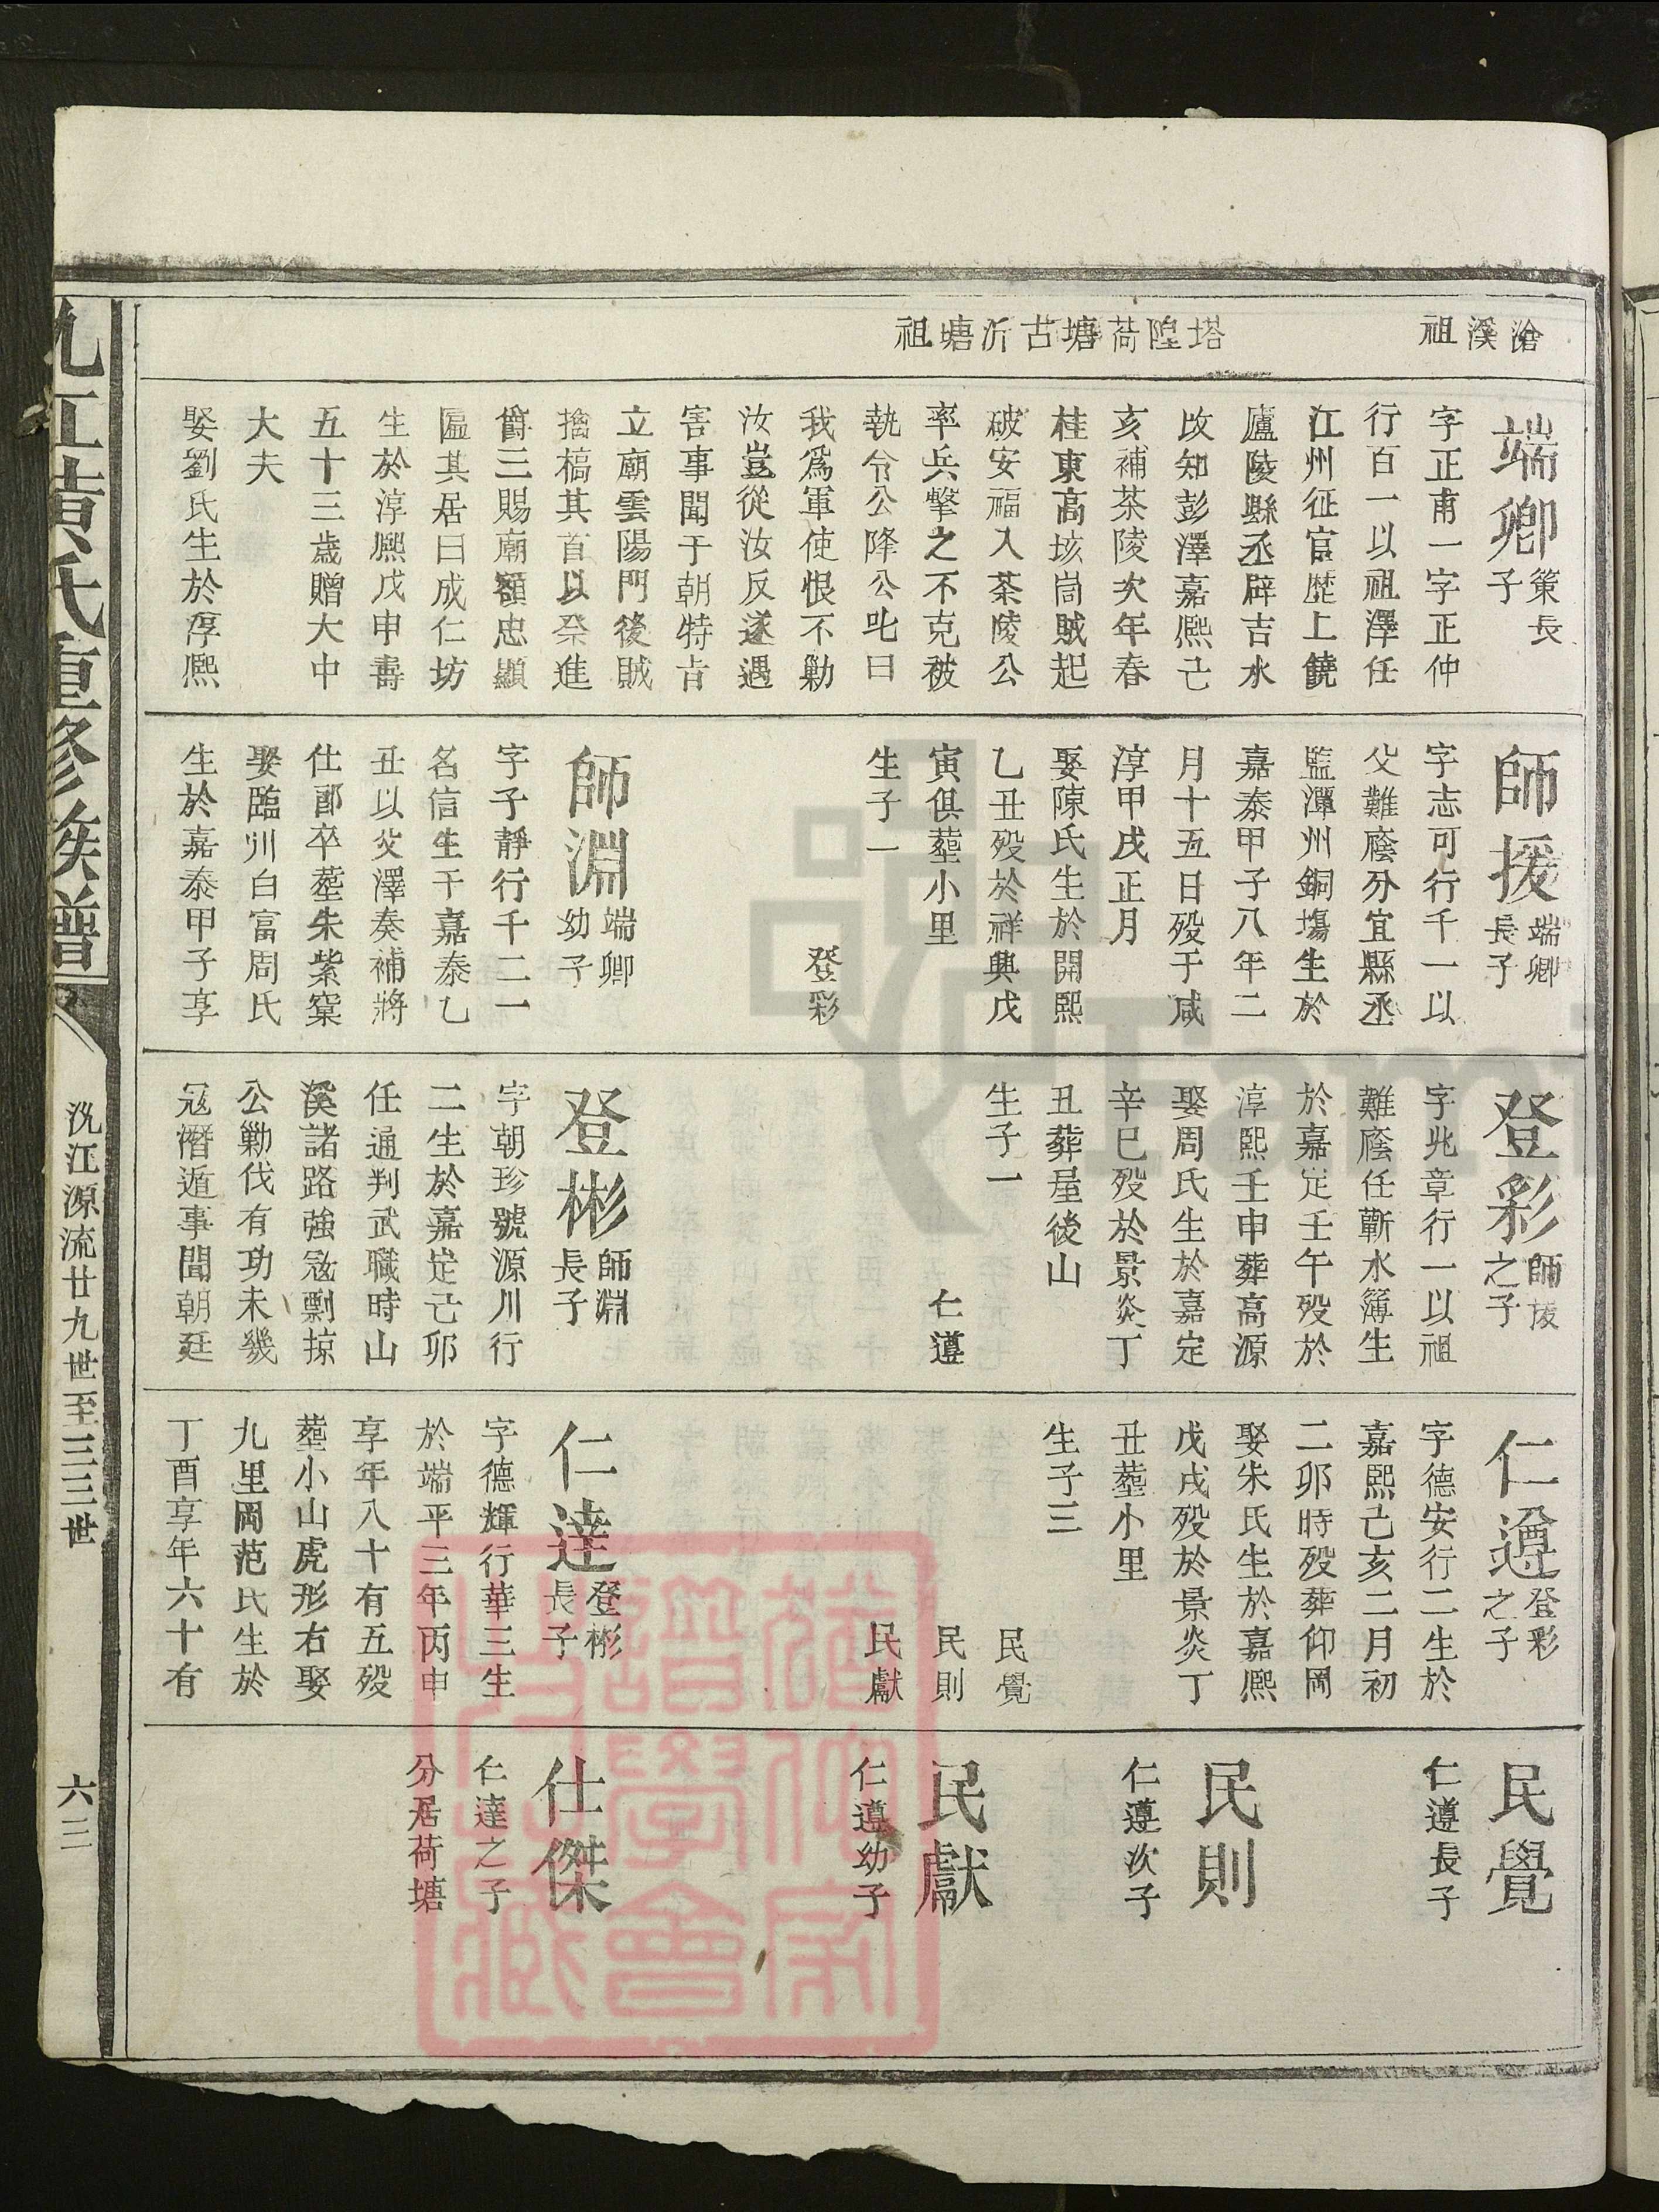 滄溪祖
塔隍荷塘古沂塘祖
端卿
策長
子
字正甫一字正仲
行百一以祖澤任
江州征官歷上饒
廬陵縣丞辟吉水
改知彭澤嘉熙己
亥補茶陵次年春
桂東高垓峝賊起
破安福入茶陵公
率兵擊之不克被
執令公降公叱曰
我爲軍使恨不勦
汝豈從汝反遂遇
害事聞于朝特旨
立廟雲陽門後賊
擒槁其首以祭進
爵三賜廟額忠顯
匾其居曰成仁坊
生於淳熙戊申壽
五十三歳贈大中
大夫
娶劉氏生於淳熙
師援
端卿
長子
字志可行千一以
父難廕分宜縣丞
監潭州銅塲生於
嘉泰甲子八年二
月十五日殁于咸
淳甲戌正月
娶陳氏生於開熙
乙丑殁於祥興戊
寅俱塟小里
生子一
登彩
師淵
端卿
幼子
字子靜行千二一
名信生于嘉泰乙
丑以父澤奏補將
仕郎卒塟朱紫窠
娶臨川白富周氏
生於嘉泰甲子享
登彩
師援
之子
字兆章行一以祖
難廕任蘄水簿生
於嘉定壬午殁於
淳熙壬申葬高源
娶周氏生於嘉定
辛巳殁於景炎丁
丑葬屋後山
生子一
仁遵
登彬
師淵
長子
字朝珍號源川行
二生於嘉定己卯
任通判武職時山
溪諸路強寇剽掠
公勦伐有功未幾
寇潛遁事聞朝廷
仁遵
登彩
之子
字德安行二生於
嘉熙己亥二月初
二卯時殁葬仰岡
娶朱氏生於嘉熙
戊戌殁於景炎丁
丑塟小里
生子三
民覺
民則
民獻
仁達
登彬
長子
字德輝行華三生
於端平三年丙申
享年八十有五殁
塟小山虎形右娶
九里岡范氏生於
丁酉享年六十有
民覺
仁遵長子
民則
仁遵次子
民獻
仁遵幼子
仕傑
仁達之子
分居荷塘
沇江黄氏重修族譜
沇江源流廿九世至三三世
六三